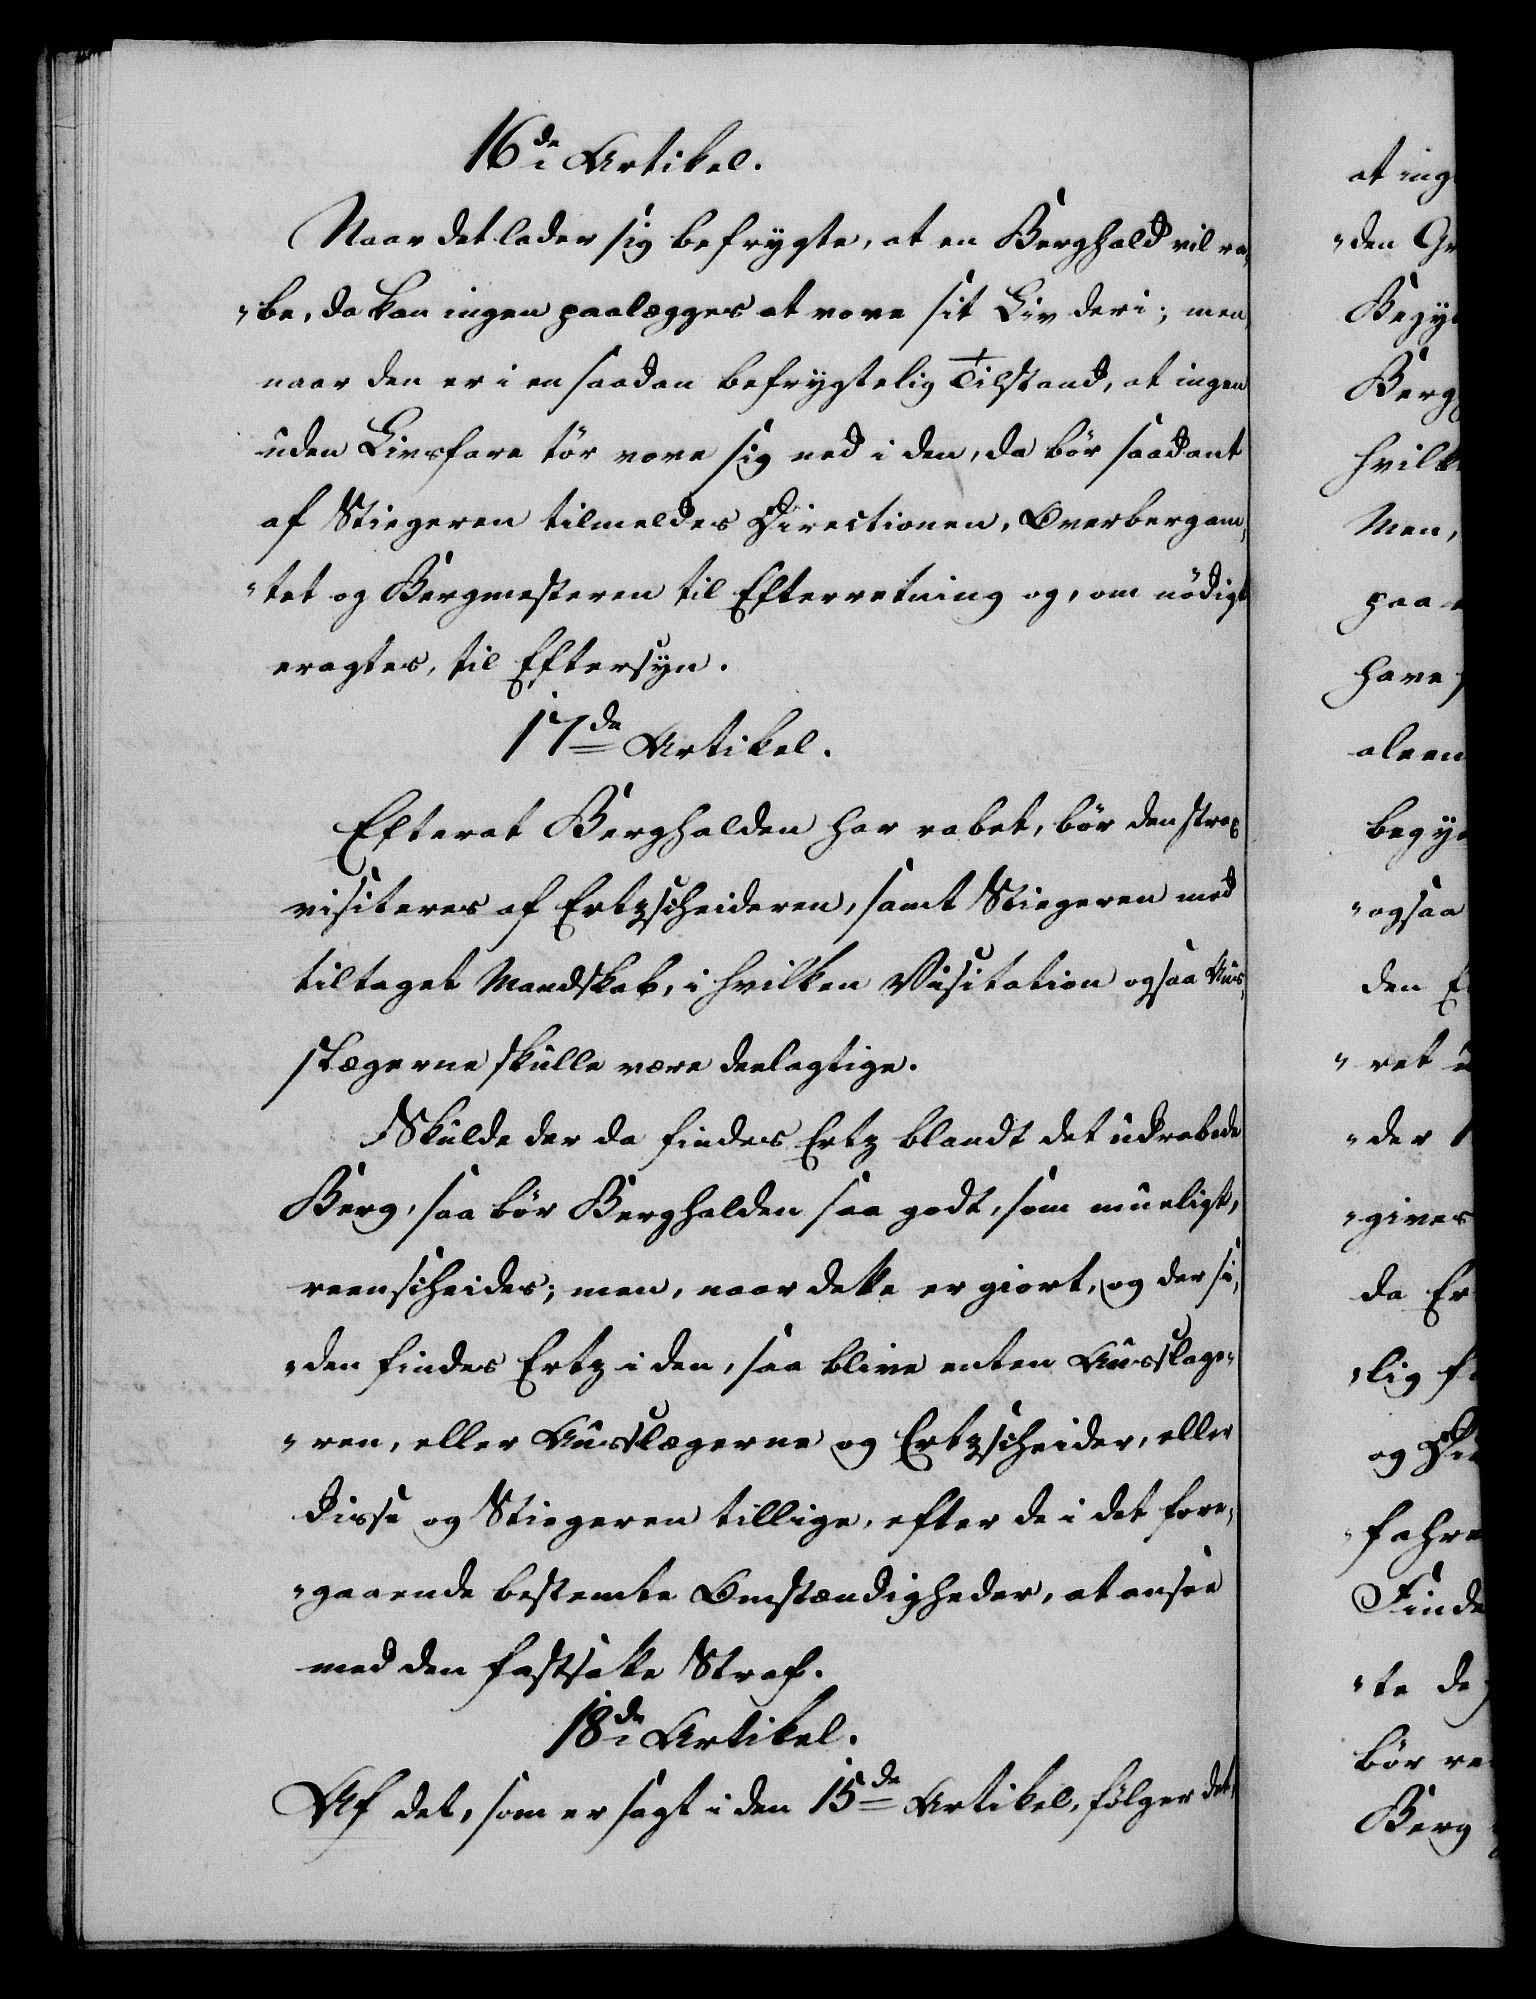 16de Artikel.
Naar det lader sig befrygte, at en Berghald vil ra,
"be, da kan ingen paalægges at vove sit Liv deri; men,
naar den er i en saadan befrygtelig Tilstand, at ingen
uden Livsfare tör vove sig ned i den, da bör saadant
af Stiegeren tilmeldes Directionen, Overbergam,
"tet og Bergmesteren til Efterretning og, om nödigt
eragtes, til Eftersyn.
17de Artikel.
Efterat Berghalden har rabet, bör den strax
visiteres af Ertzscheideren, samt Stiegeren med
tiltaget Mandskab, i hvilken Visitation ogsaa Aus,
slægerne skulle være deelagtige.
Skulde der da findes Ertz blandt det udrabede
Berg, saa bör Berghalden saa godt, som mueligt,
reenscheides; men, naar dette er giort, og der si,
"den findes Ertz i den, saa blive enten Ausslage,
"ren, eller Ausslægerne og Ertzscheider, eller
disse og Stiegeren tillige, efter de i det fore,
"gaaende bestemte Omstændigheder, at ansee
med den fastsatte Straf.
18de Artikel.
Af det, som er sagt i den 15de Artikel, fölger det,
at ing
"den
Berg
paa
have
"ogsaa
den
"ret
"der
"gives
da
"lig
og
Finde
"te
bör
Berg